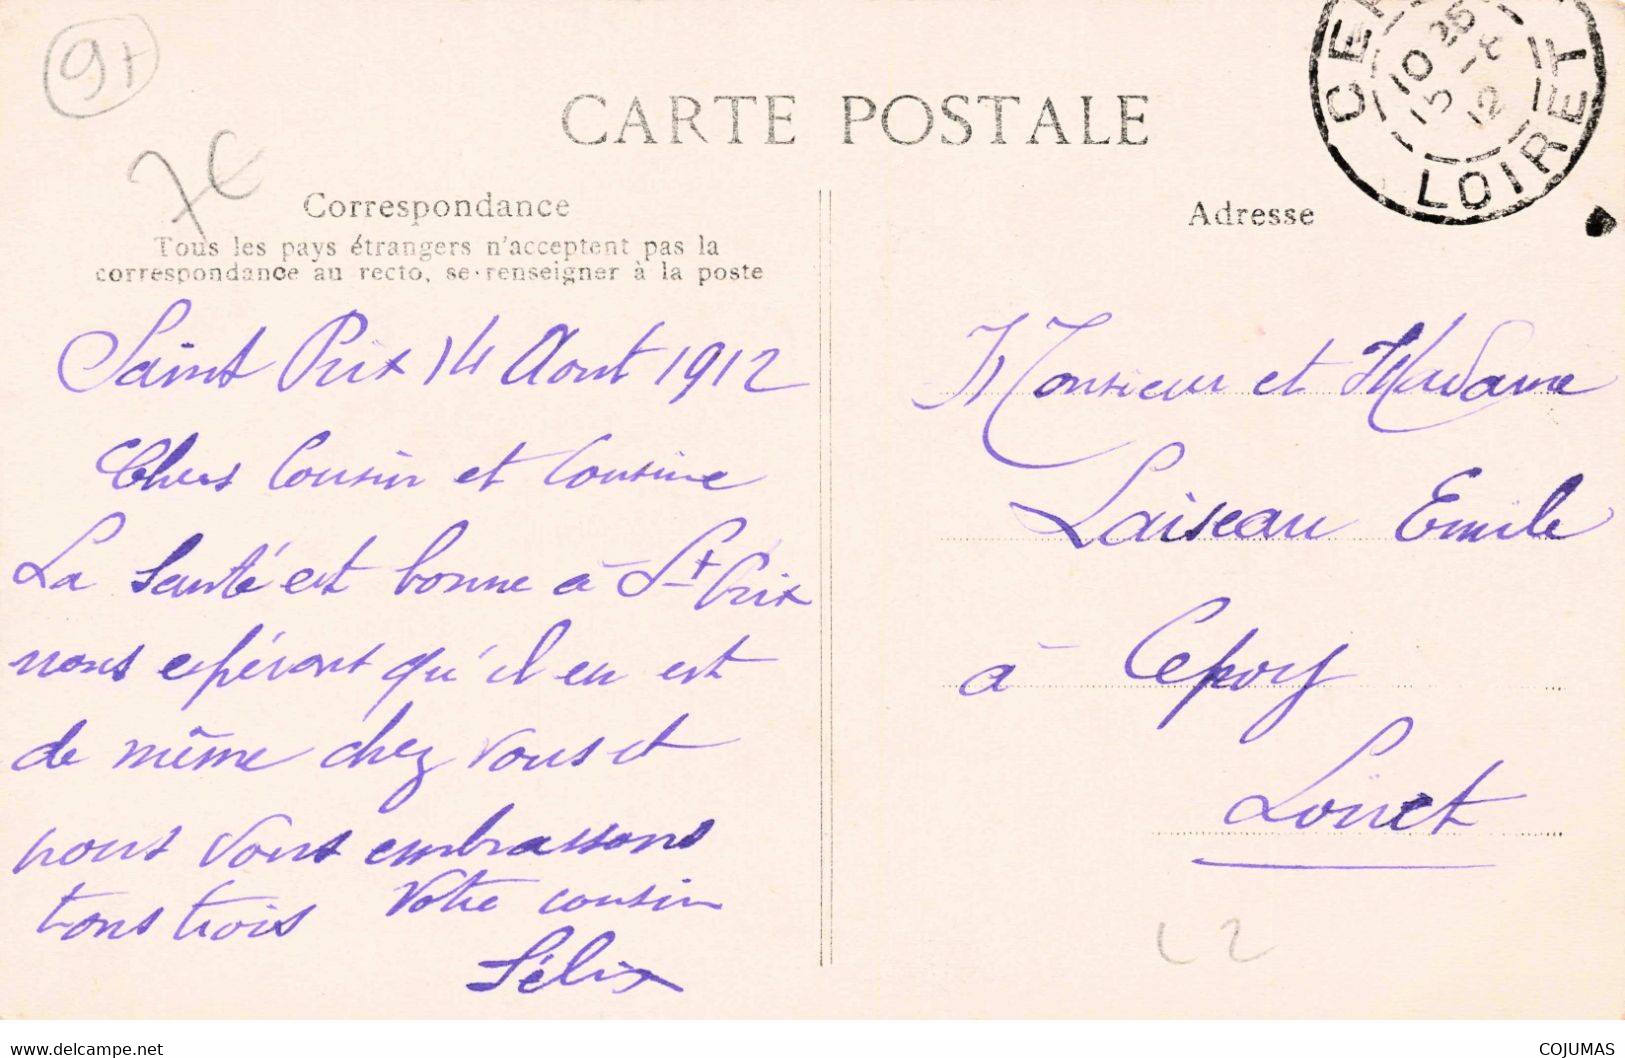 9+
7€
CARTE POSTALE
Correspondance
Tous les pays étrangers n'acceptent pas la
correspondance au recto, se renseigner à la poste
Saint Prix 14 Aout 1912
Chers Cousin et Cousine
La Santé est bonne à St Prix
nous espérons qu'il en est
de même chez vous et
nous vous embrassons
tous trois Votre cousin
Félix
Adresse
CE
10 25
15 -8
12
LOIRET
Monsieur et Madame
Laiseau Emile
à Cepoy
Loiret
www.delcampe.net
COJUMAS